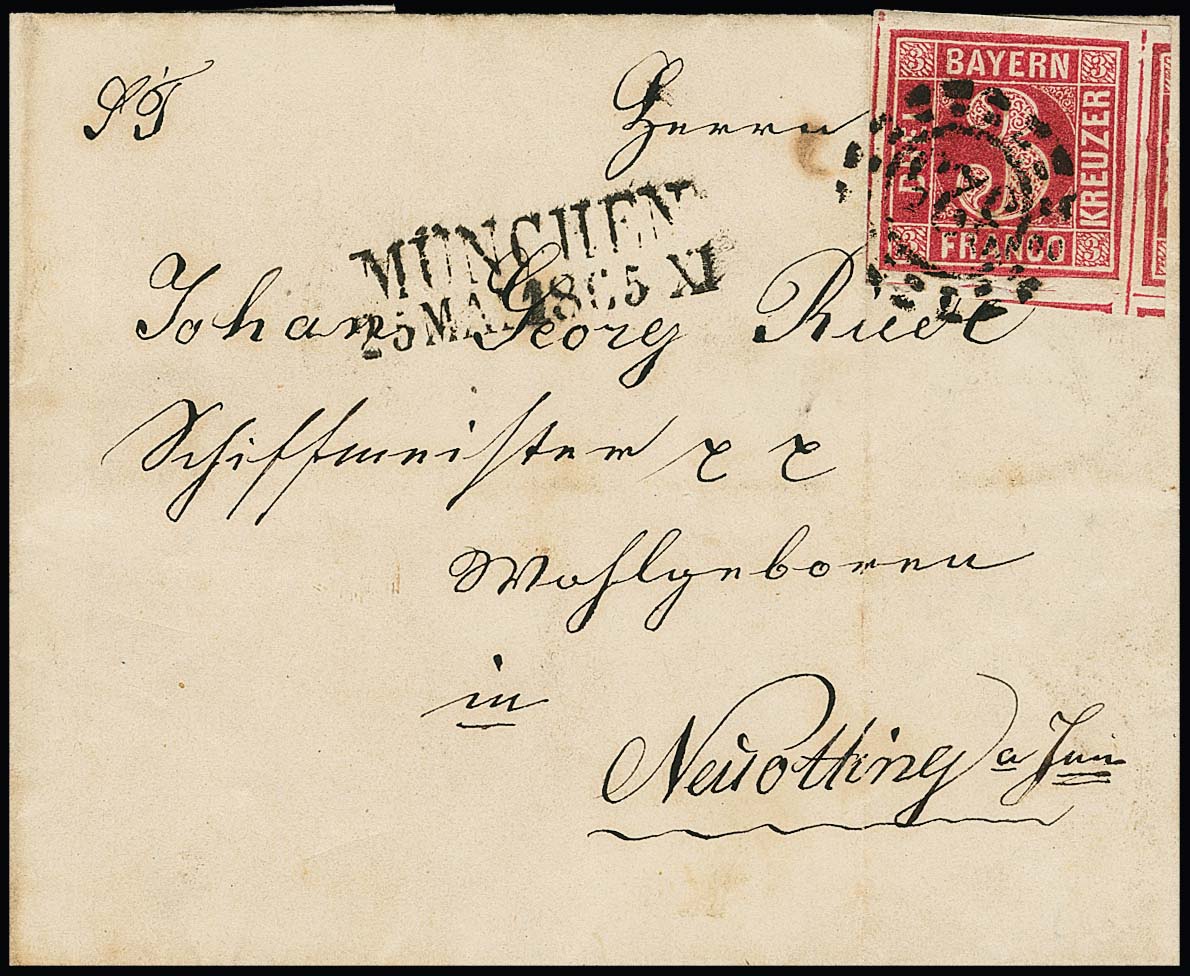 Herrn
Johann Georg Riedl
Schiffmeister x x
Wohlgeboren
in
Neuötting a Inn
MÜNCHEN
25 MAI 1865 XI
BAYERN
DREI
KREUZER
FRANCO
3
3
3
3
3